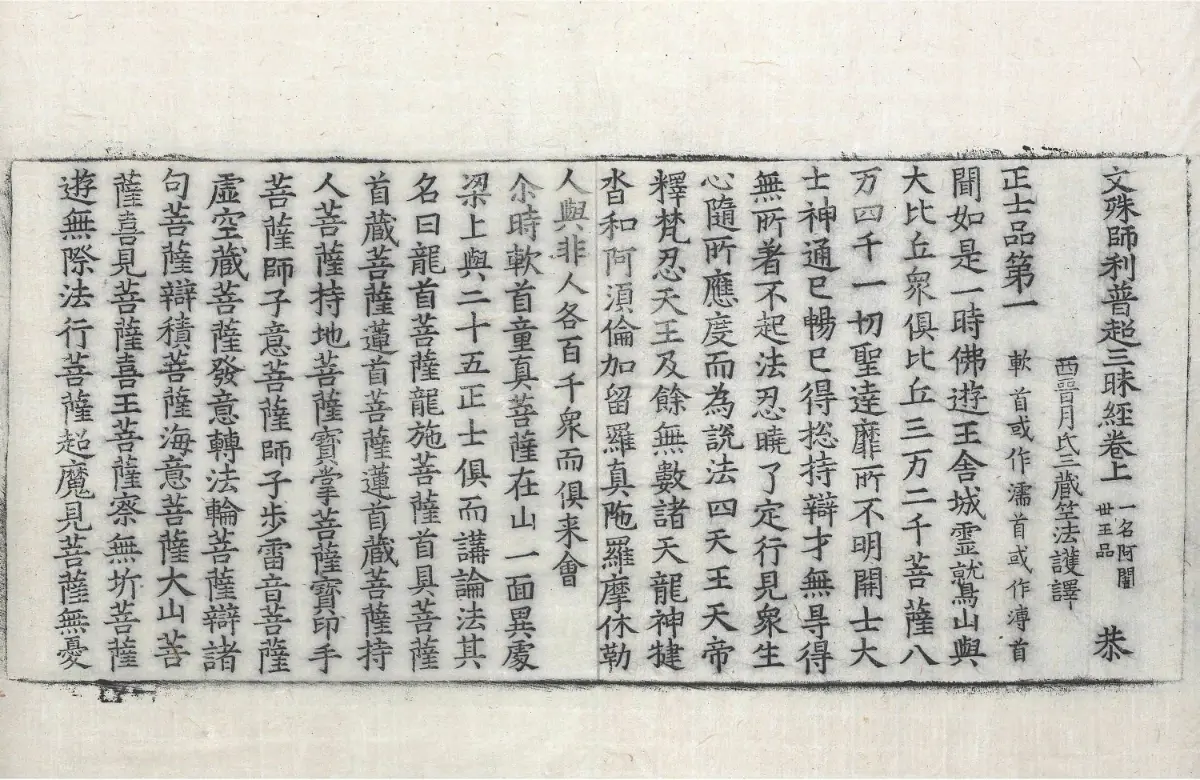 文殊師利普超三昧經卷上 一名阿闍世王品 恭
西晉月氏三藏竺法護譯
正士品第一 軟首或作濡首或作溥首
聞如是一時佛遊王舍城靈鷲山與
大比丘衆俱比丘三万二千菩薩八
万四千一切聖達靡所不明開士大
士神通已暢已得捴持辯才無㝵得
無所著不起法忍曉了定行見衆生
心隨所應度而為說法四天王天帝
釋梵忍天王及餘無數諸天龍神揵
沓和阿須倫加留羅真陁羅摩休勒
人與非人各百千衆而俱来會
尒時軟首童真菩薩在山一面異處
梁上與二十五正士俱而講論法其
名曰龍首菩薩龍施菩薩首具菩薩
首藏菩薩蓮首菩薩蓮首藏菩薩持
人菩薩持地菩薩寶掌菩薩寶印手
菩薩師子意菩薩師子步雷音菩薩
虛空藏菩薩發意轉法輪菩薩辯諸
句菩薩辯積菩薩海意菩薩大山菩
薩喜見菩薩喜王菩薩察無圻菩薩
遊無際法行菩薩超魔見菩薩無憂